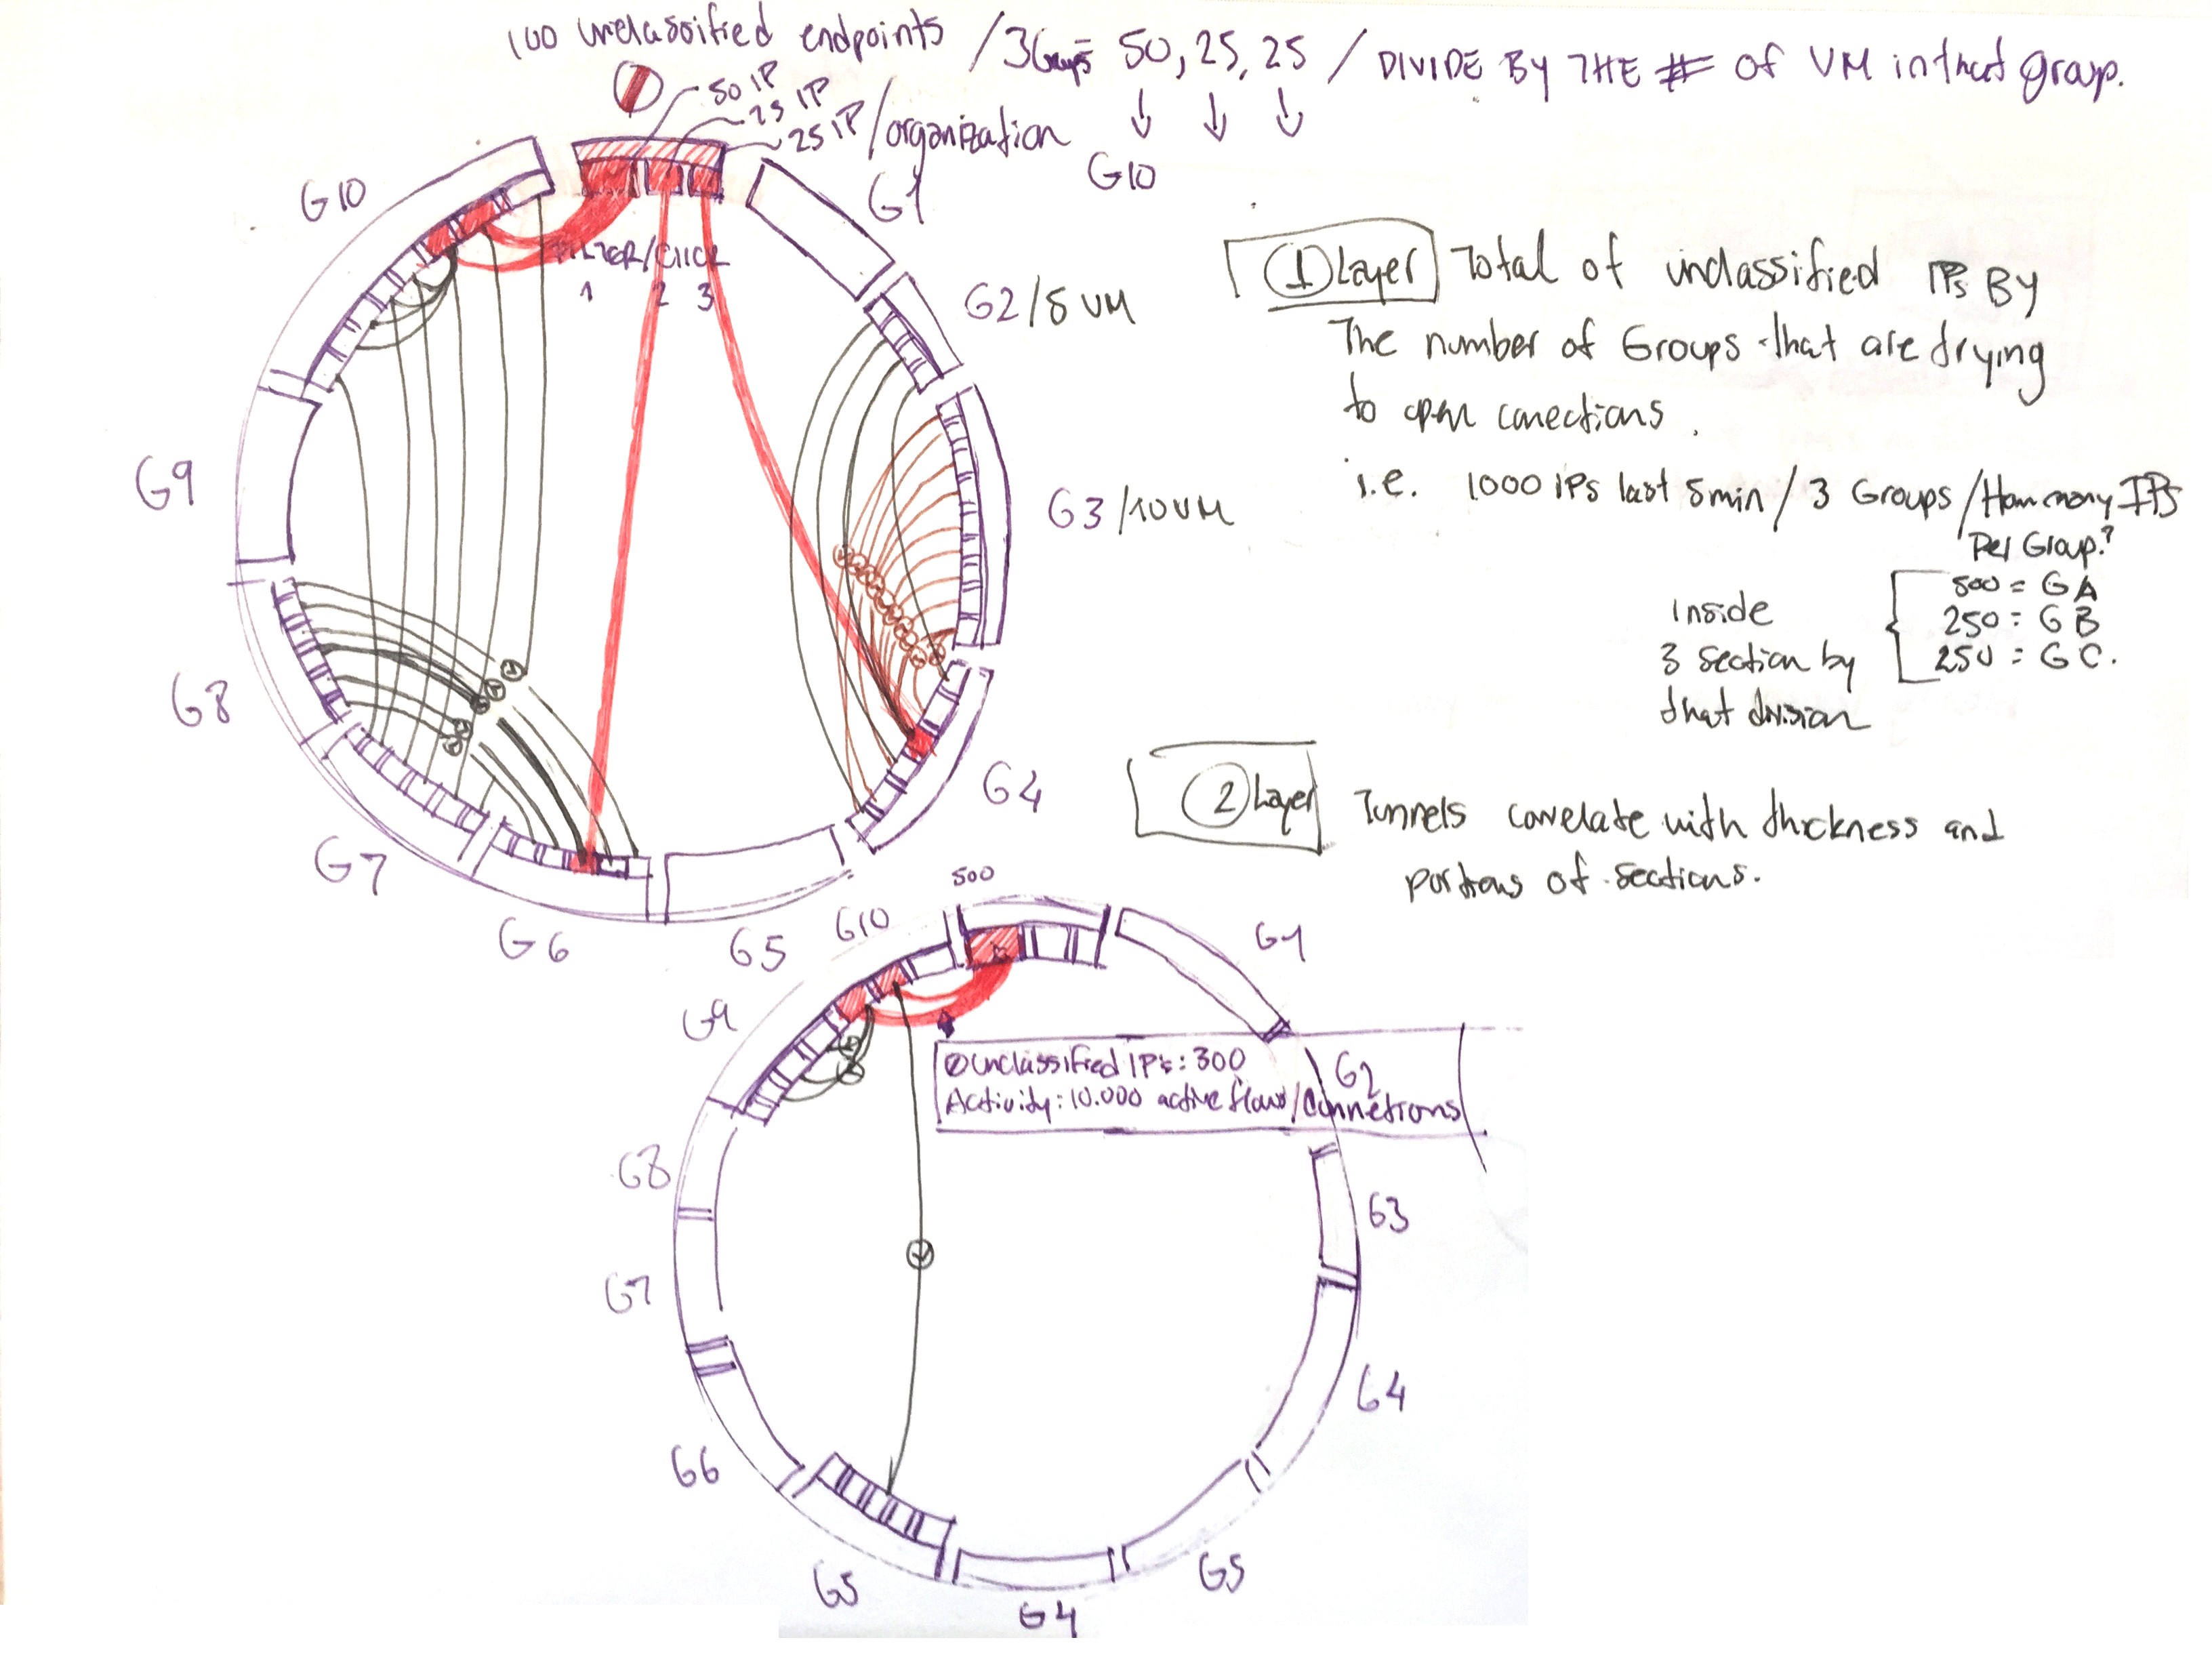 100 unclassified endpoints / 3 Groups = 50, 25, 25 / DIVIDE BY THE # of VM in that group.
50 IP
25 IP
25 IP / organization
G10
G10
G1
FILTER/CLICK
1 2 3
G2/5 VM
G3/10VM
G4
G5
G6
G7
G8
G9
1 Layer Total of unclassified IPs By
The number of Groups that are trying
to open conections.
i.e. 1000 iPs last 5min / 3 Groups / How many IPs
Per Group?
Inside
3 section by
that division
500 = GA
250 = GB
250 = GC.
2 Layer Tunnels correlate with thickness and
portions of sections.
500
G10
G1
G9
Unclassified IPs: 300
Activity: 10.000 active flows/Connetions
G2
G8
G3
G7
G4
G6
G5
G5
G4